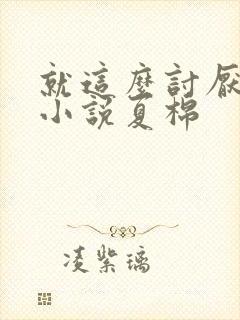 就這麼討厭
小說夏棉
凌紫璃